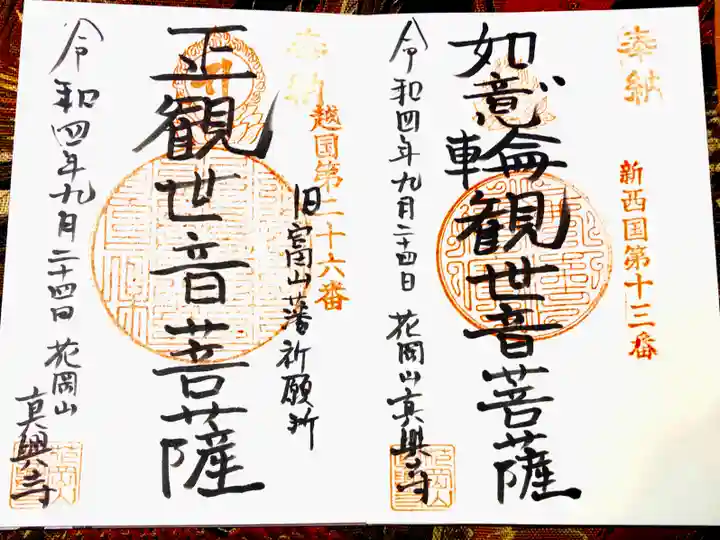 奉納
新西国第十三番
如意輪観世音菩薩
令和四年九月二十四日 花岡山 真興寺
奉納
越国第二十六番
旧富山藩祈願所
正観世音菩薩
令和四年九月二十四日 花岡山
真興寺